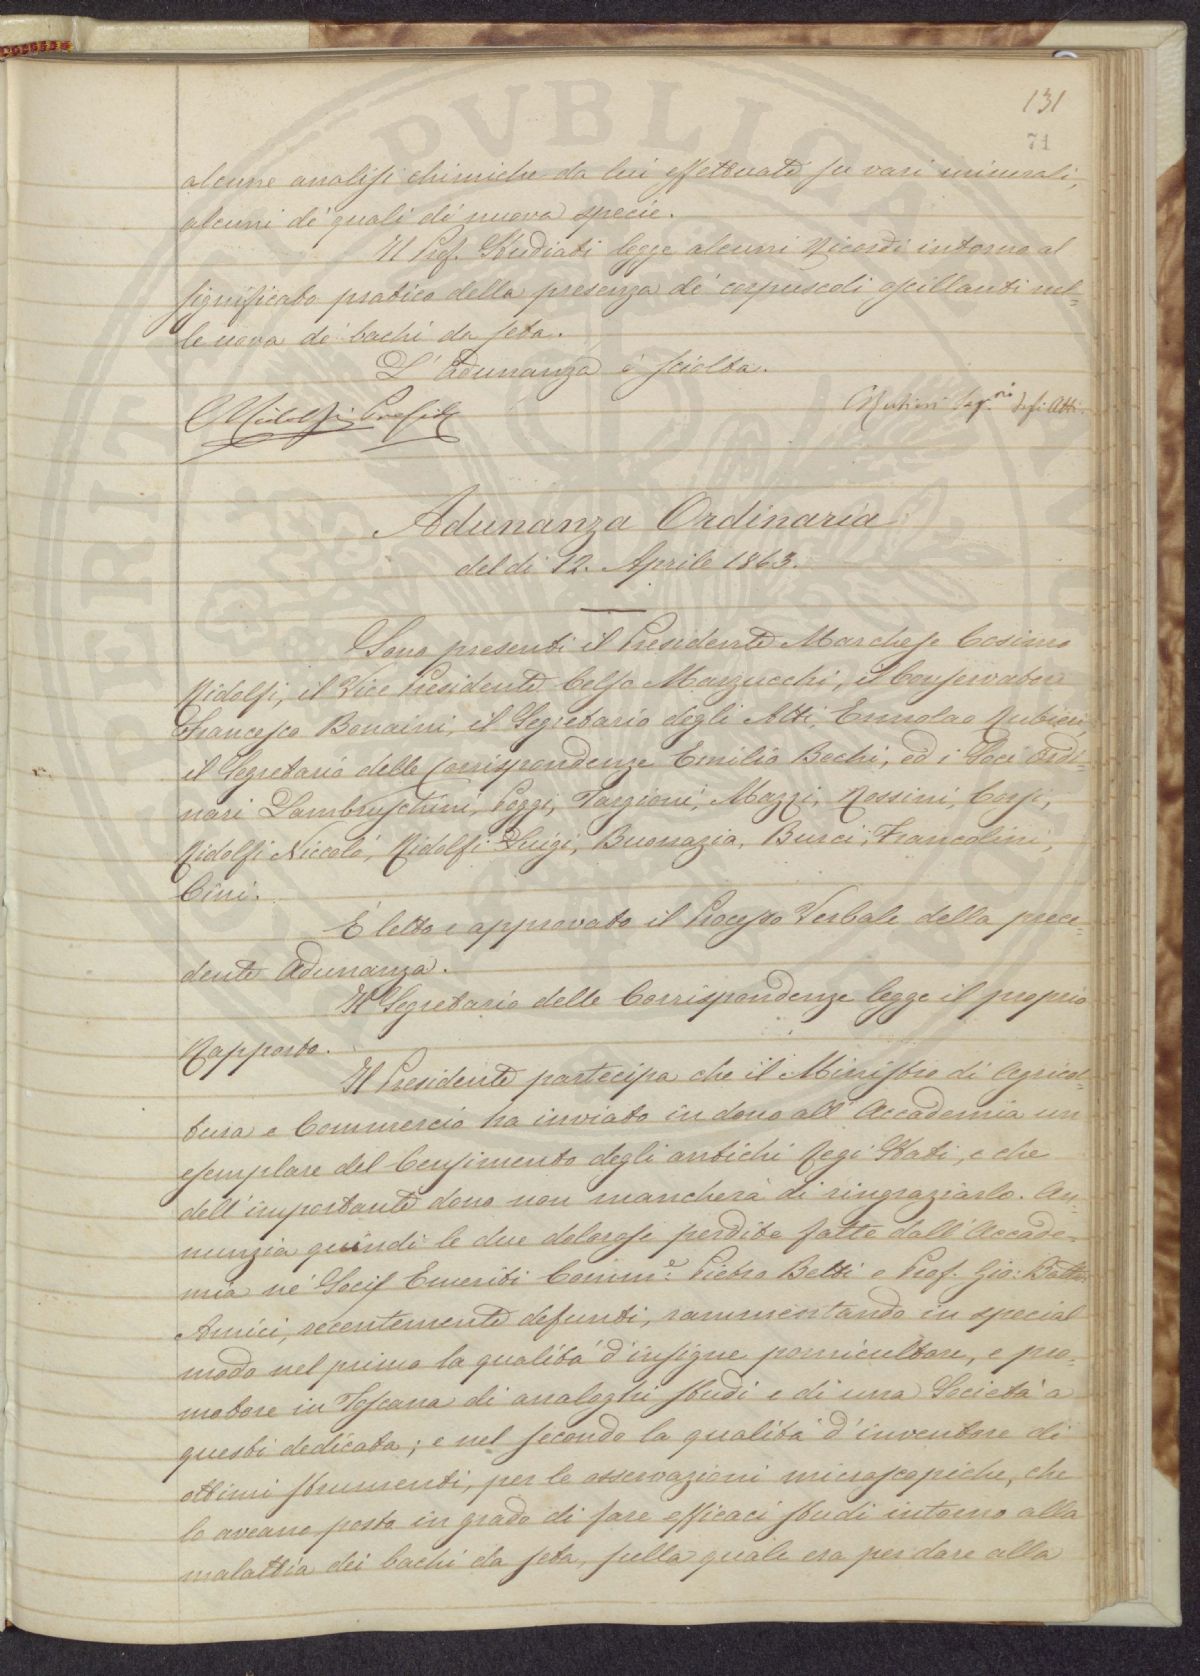 131
71
alcune analisi chimiche da lui effettuate su vari minerali,
alcuni de' quali di nuova specie.
Il Prof. Studiati legge alcuni Ricordi intorno al
significato pratico della presenza de' corpuscoli oscillanti nel-
le uova de' bachi da seta.
L'Adunanza è sciolta.
CRidolfi Presid
ERubieri Seg.rio degli Atti.
Adunanza Ordinaria
del dì 12. Aprile 1863.
Sono presenti il Presidente Marchese Cosimo
Ridolfi, il Vice Presidente Celso Marzucchi, il Conservatore
Francesco Bonaini, il Segretario degli Atti, Ermolao Rubieri,
il Segretario delle Corrispondenze Emilio Bechi, ed i Soci Ordi-
nari Lambruschini, Poggi, Targioni, Mazzi, Rossini, Corsi,
Ridolfi Niccolò, Ridolfi Luigi, Buonazia, Burci, Francolini,
Cini.
È letto e approvato il Processo Verbale della prece-
dente Adunanza.
Il Segretario delle Corrispondenze legge il proprio
Rapporto.
Il Presidente partecipa che il Ministro di Agricol-
tura e Commercio ha inviato in dono all'Accademia un
esemplare del Censimento degli antichi Regi Stati, e che
dell'importante dono non mancherà di ringraziarlo. An-
nunzia quindi le due dolorose perdite fatte dall'Accade-
mia ne' Socij Emeriti Comm.e Pietro Betti e Prof. Gio: Batta.
Amici, recentemente defunti, rammentando in special
modo nel primo la qualità d'insigne pomicultore, e pro-
motore in Toscana di analoghi studi e di una Società a
questi dedicata; e nel secondo la qualità d'inventore di
ottimi strumenti, per le osservazioni microscopiche, che
lo aveano posto in grado di fare efficaci studi intorno alla
malattia dei bachi da seta, sulla quale era per dare alla